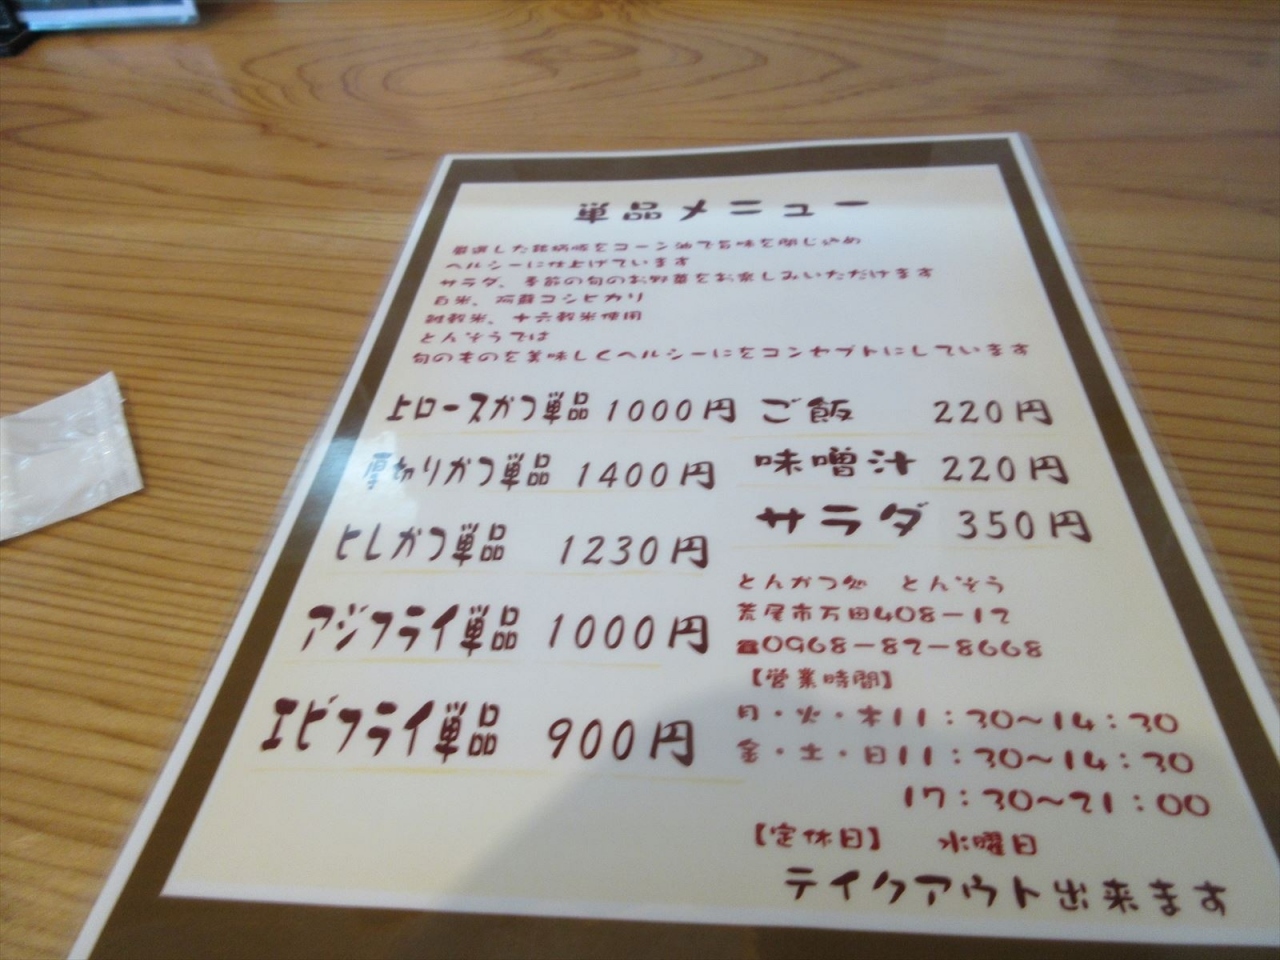 単品メニュー
厳選した銘柄豚をコーン油で旨味を閉じ込め
ヘルシーに仕上げています
サラダ、季節の旬のお野菜をお楽しみいただけます
白米、阿蘇コシヒカリ
雑穀米、十六穀米使用
とんぞうでは
旬のものを美味しくヘルシーにをコンセプトにしています
上ロースカツ単品 1000円
厚切りカツ単品 1400円
ヒレカツ単品 1230円
アジフライ単品 1000円
エビフライ単品 900円
ご飯 220円
味噌汁 220円
サラダ 350円
とんかつ処 とんぞう
荒尾市万田408－12
☎0968－82－8668
【営業時間】
月・火・木11：30～14：30
金・土・日11：30～14：30
17：30～21：00
【定休日】 水曜日
テイクアウト出来ます